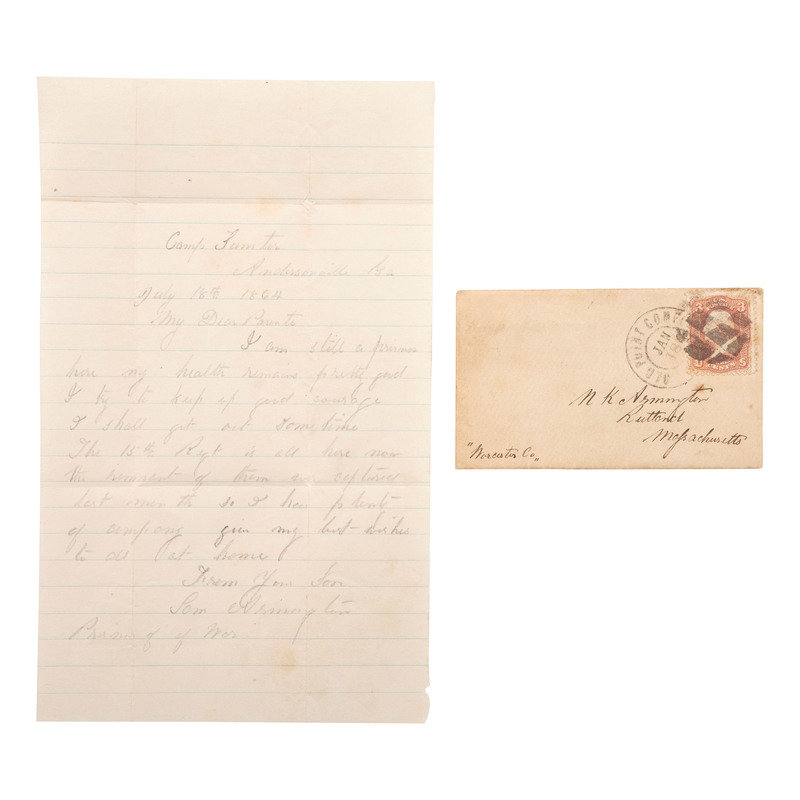 Camp Sumter
Andersonville Ga
July 18th 1864
My Dear Parents
I am still a prisoner
here my health remains pretty good
I try to keep up good courage
I shall get out sometime
The 15th Regt is all here now
the remnant of them was captured
last month so I have plenty
of company give my best wishes
to all at home
From Your Son
Sam Armington
Prisoner of War
OLD POINT COMF
JAN
3 3
CENTS
N K Armington
Rutland
Massachusetts
"Worcester Co"